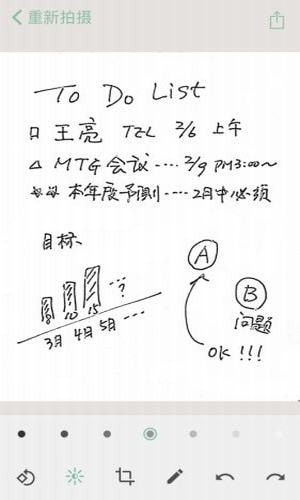 重新拍摄
To Do List
□ 王亮 TEL 2/6 上午
△ MTG 会议‥‥ 2/9 PM3:00~
本年度予測‥‥ 2月中必須
目标、
8 10 15 ‥‥?
3月 4月 5月 ‥‥
A
B
问题
OK !!!